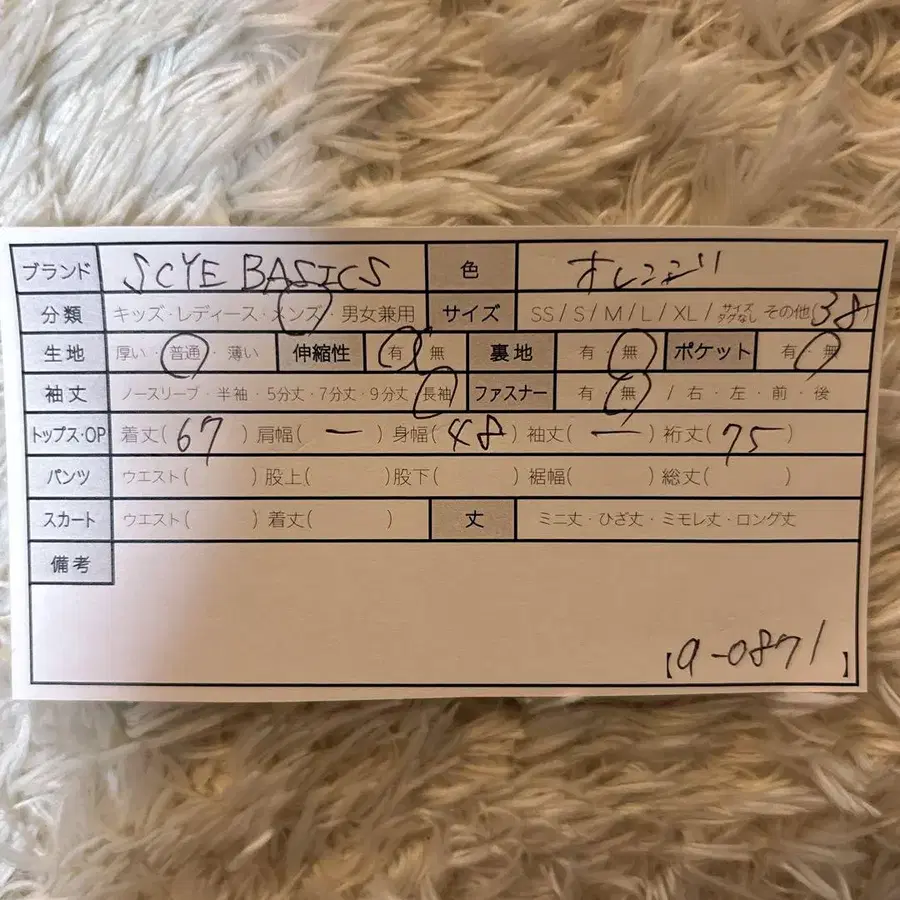 ブランド SCYE BASICS 色 オレンジ
分類 キッズ・レディース・メンズ・男女兼用 サイズ SS / S / M / L / XL / サイズタグなし その他(38)
生地 厚い・普通・薄い 伸縮性 有・無 裏地 有・無 ポケット 有・無
袖丈 ノースリーブ・半袖・5分丈・7分丈・9分丈・長袖 ファスナー 有・無 / 右・左・前・後
トップス・OP 着丈(67) 肩幅(ー) 身幅(48) 袖丈(ー) 裄丈(75)
パンツ ウエスト( ) 股上( ) 股下( ) 裾幅( ) 総丈( )
スカート ウエスト( ) 着丈( ) 丈 ミニ丈・ひざ丈・ミモレ丈・ロング丈
備考
【a-0871】